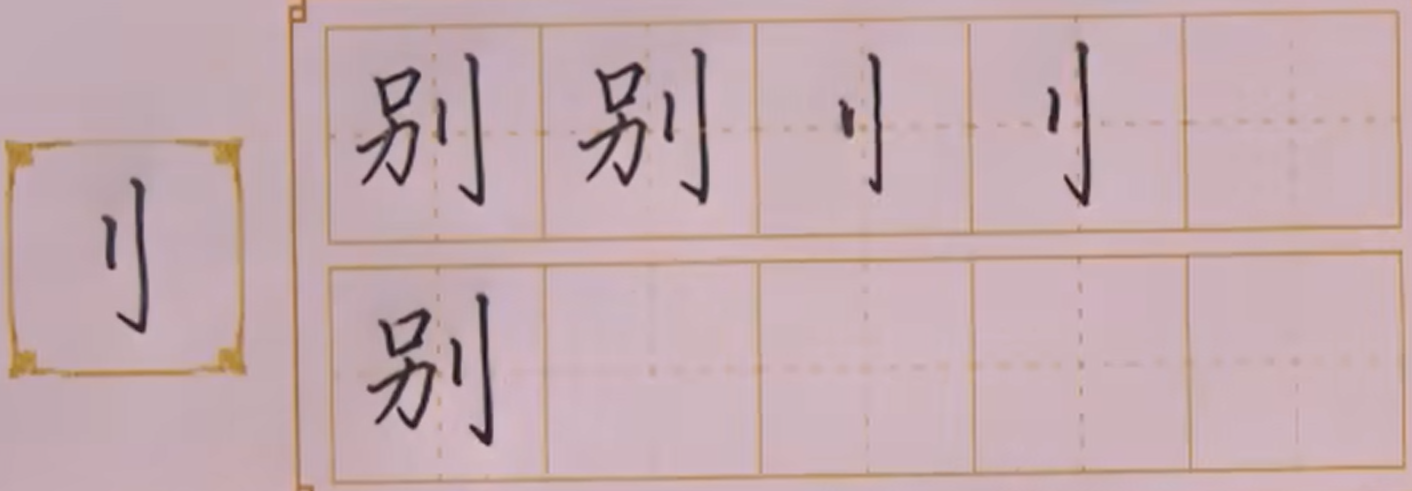 刂
别别刂刂
别